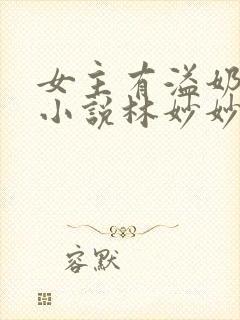 女主有溢奶
小说林妙妙
容默